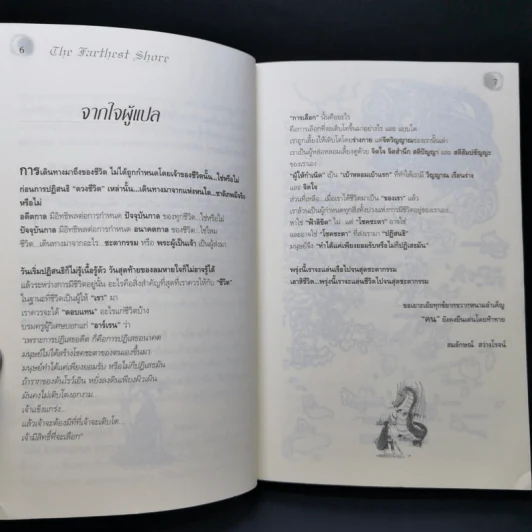 6
The Farthest Shore
จากใจผู้แปล
การเดินทางมาถึงของชีวิต ไม่ได้ถูกกำหนดโดยเจ้าของชีวิตนั้น...ใช่หรือไม่
ก่อนการปฏิสนธิ "ดวงชีวิต" เหล่านั้น...เดินทางมาจากแห่งหนใด...ชาติภพมีจริง
หรือไม่
อดีตกาล มีอิทธิพลต่อการกำหนด ปัจจุบันกาล ของทุกชีวิต...ใช่หรือไม่
ปัจจุบันกาล มีอิทธิพลต่อการกำหนด อนาคตกาล ของชีวิต...ใช่ไหม
ชีวิต...เดินทางมาจากอะไร...ชะตากรรม หรือ พระผู้เป็นเจ้า เป็นผู้ส่งมา
วันเริ่มปฏิสนธิก็ไม่รู้เนื้อรู้ตัว วันสุดท้ายของลมหายใจก็ไม่อาจรู้ได้
แล้วระหว่างการมีชีวิตอยู่นั้น อะไรคือสิ่งสำคัญที่สุดที่เราควรให้กับ "ชีวิต"
ในฐานะที่ชีวิตเป็นผู้ให้ "เรา" มา
เราควรจะได้ "ตอบแทน" อะไรแก่ชีวิตบ้าง
บรมครูผู้วิเศษบอกแก่ "อาร์เรน" ว่า
"เพราะการปฏิเสธอดีต ก็คือการปฏิเสธอนาคต
มนุษย์ไม่ได้สร้างโชคชะตาของตนเองขึ้นมา
มนุษย์ทำได้แค่เพียงยอมรับ หรือไม่ก็ปฏิเสธมัน
ถ้ารากของต้นโรว์เป็น หยั่งลงดินเพียงผิวเผิน
มันคงไม่เติบโตงอกงาม...
เจ้าแข็งแกร่ง...
แล้วเจ้าจะต้องมีที่ที่เจ้าจะเติบโต...
เจ้ามีสิทธิ์ที่จะเลือก"
7
"การเลือก" นั้นคืออะไร
คือการเลือกที่จะเติบโตขึ้นมาอย่างไร และ แบบใด
เขาถูกเลี้ยงให้เติบโตโดยร่างกาย แต่จิตวิญญาณของเรานั้นเล่า
เราเป็นผู้หล่อหลอมเลี้ยงดูด้วย จิตใจ จิตสำนึก สติปัญญา และ สติสัมปชัญญะ
ของเราเอง
"ผู้ให้กำเนิด" เป็น "เบ้าหลอมเบ้าแรก" ที่ทำให้เรามี วิญญาณ เรือนร่าง
และ จิตใจ
ส่วนที่เหลือ...เมื่อเราได้ชีวิตมาเป็น "ของเรา" แล้ว
เราล้วนเป็นผู้กำหนดทุกสิ่งทุกอย่างแห่งการมีชีวิตอยู่ของเราเอง...
หาใช่ "ฟ้าลิขิต" ไม่...หาใช่ "โชคชะตา" อาจใช่
และอาจใช่ "โชคชะตา" ที่ส่งเรามา "ปฏิสนธิ"
มนุษย์จึง "ทำได้แค่เพียงยอมรับหรือไม่ก็ปฏิเสธมัน"
พรุ่งนี้เราจะแล่นเรือไปจนสุดชะตากรรม
เอาสิชีวิต...พรุ่งนี้เราจะแล่นชีวิตไปจนสุดชะตากรรม
"คน" ยังคงยืนเด่นโดยท้าทาย
สมลักษณ์ สว่างโรจน์